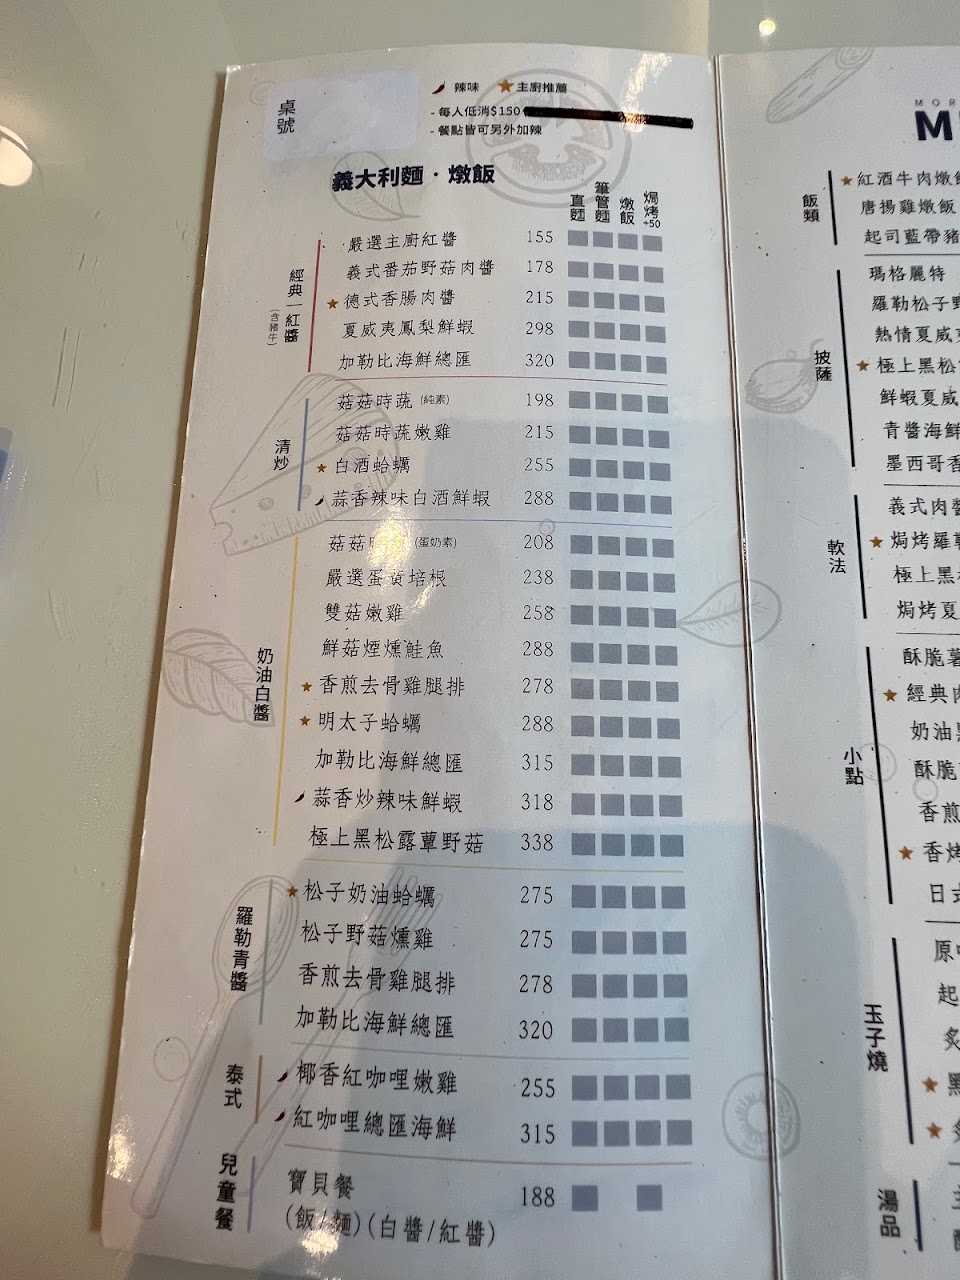 桌號
辣味 ★主廚推薦
- 每人低消$150
- 餐點皆可另外加辣
義大利麵·燉飯
直麵 筆管麵 燉飯 焗烤+50
經典—紅醬
(含豬牛)
嚴選主廚紅醬 155
義式番茄野菇肉醬 178
★德式香腸肉醬 215
夏威夷鳳梨鮮蝦 298
加勒比海鮮總匯 320
清炒
菇菇時蔬 (純素) 198
菇菇時蔬嫩雞 215
★白酒蛤蠣 255
蒜香辣味白酒鮮蝦 288
奶油白醬
菇菇 (蛋奶素) 208
嚴選蛋黃培根 238
雙菇嫩雞 258
鮮菇煙燻鮭魚 288
★香煎去骨雞腿排 278
★明太子蛤蠣 288
加勒比海鮮總匯 315
蒜香炒辣味鮮蝦 318
極上黑松露蕈野菇 338
羅勒青醬
★松子奶油蛤蠣 275
松子野菇燻雞 275
香煎去骨雞腿排 278
加勒比海鮮總匯 320
泰式
椰香紅咖哩嫩雞 255
紅咖哩總匯海鮮 315
兒童餐
寶貝餐 188
(飯/麵)(白醬/紅醬)
MOR
M
飯類
★紅酒牛肉燉
唐揚雞燉飯
起司藍帶豬
披薩
瑪格麗特
羅勒松子
熱情夏威
★極上黑松
鮮蝦夏威
青醬海鮮
墨西哥香
軟法
義式肉醬
★焗烤羅
極上黑
焗烤夏
小點
酥脆
★經典
奶油
酥脆
香煎
★香烤
日式
玉子燒
原
起
炙
★
★
湯品